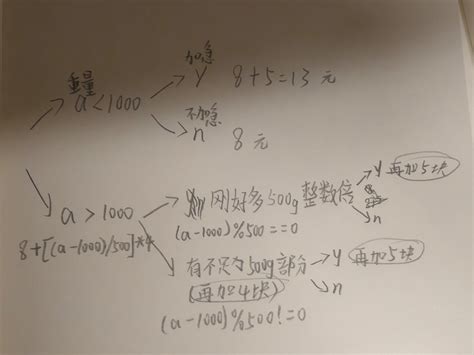 重量
a<1000
加急
y 8+5=13 元
不加急
n 8 元
a>1000
8+[(a-1000)/500]*4
刚好多500g整数倍
(a-1000)%500==0
y 再加5块
n
有不足500g部分
(再加4块)
(a-1000)%500!=0
y 再加5块
n